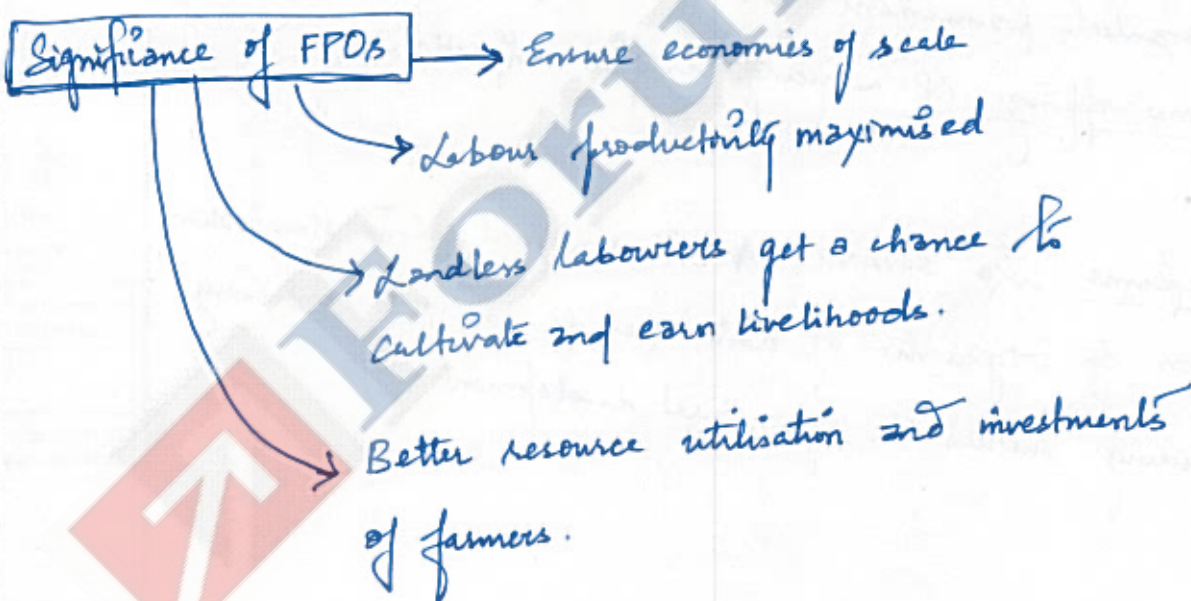 Significance of FPOs → Ensure economies of scale
→ Labour productivity maximised
→ Landless labourers get a chance to
cultivate and earn livelihoods.
→ Better resource utilisation and investments
of farmers.
Foru